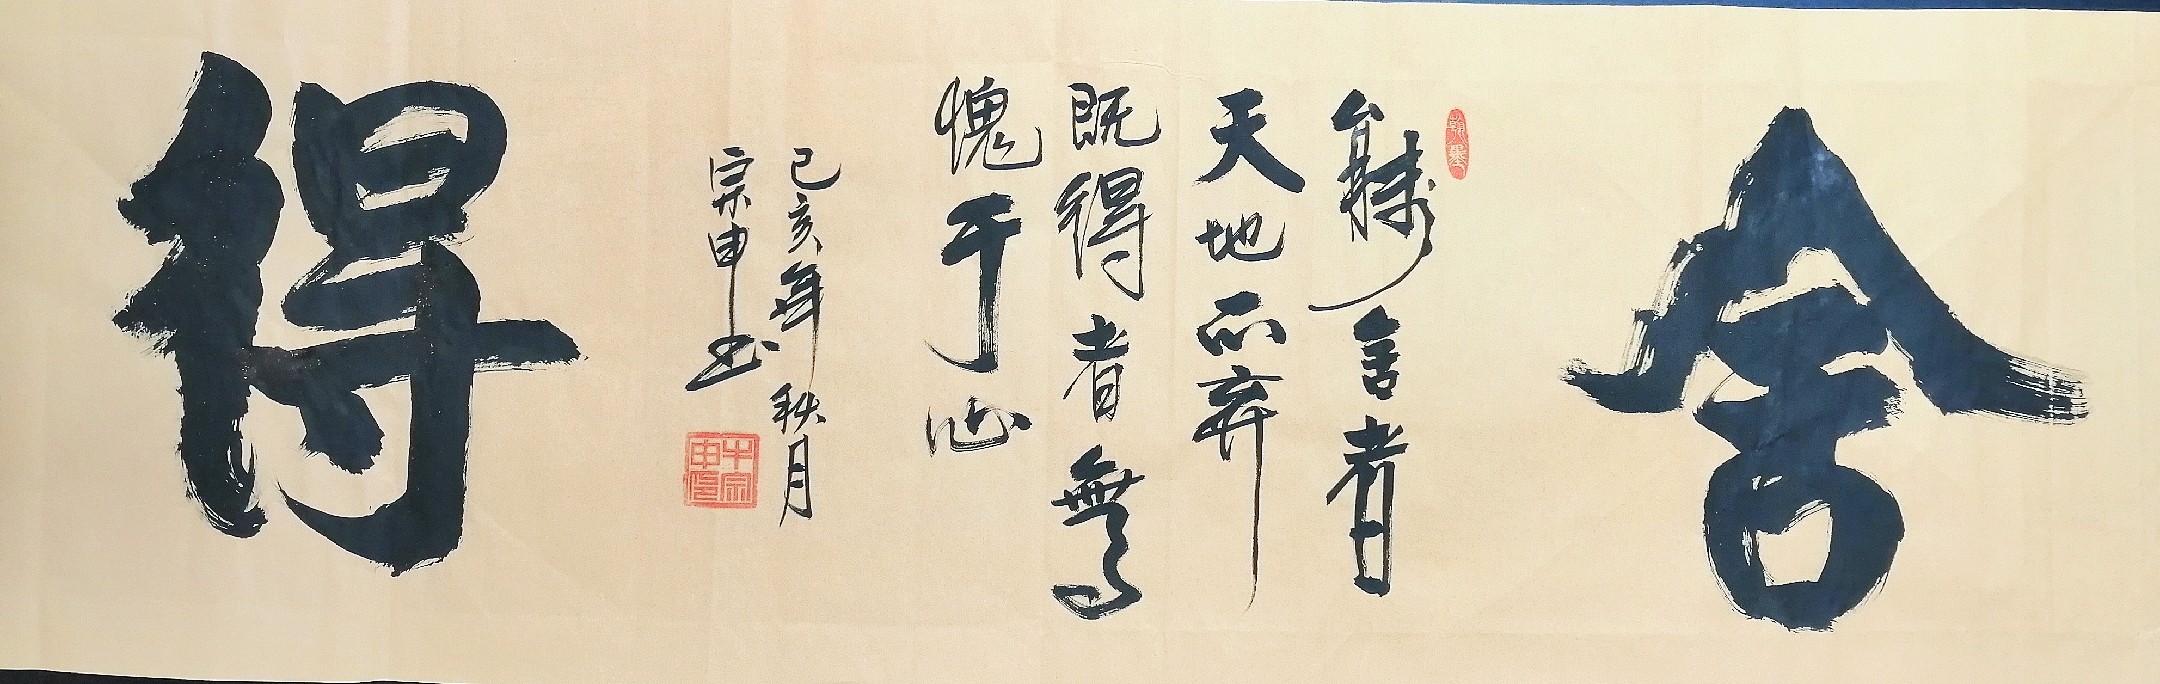 舍
翰墨
能舍者
天地不弃
既得者無
愧于心
己亥年秋月
宗申书
牛宗申印
得